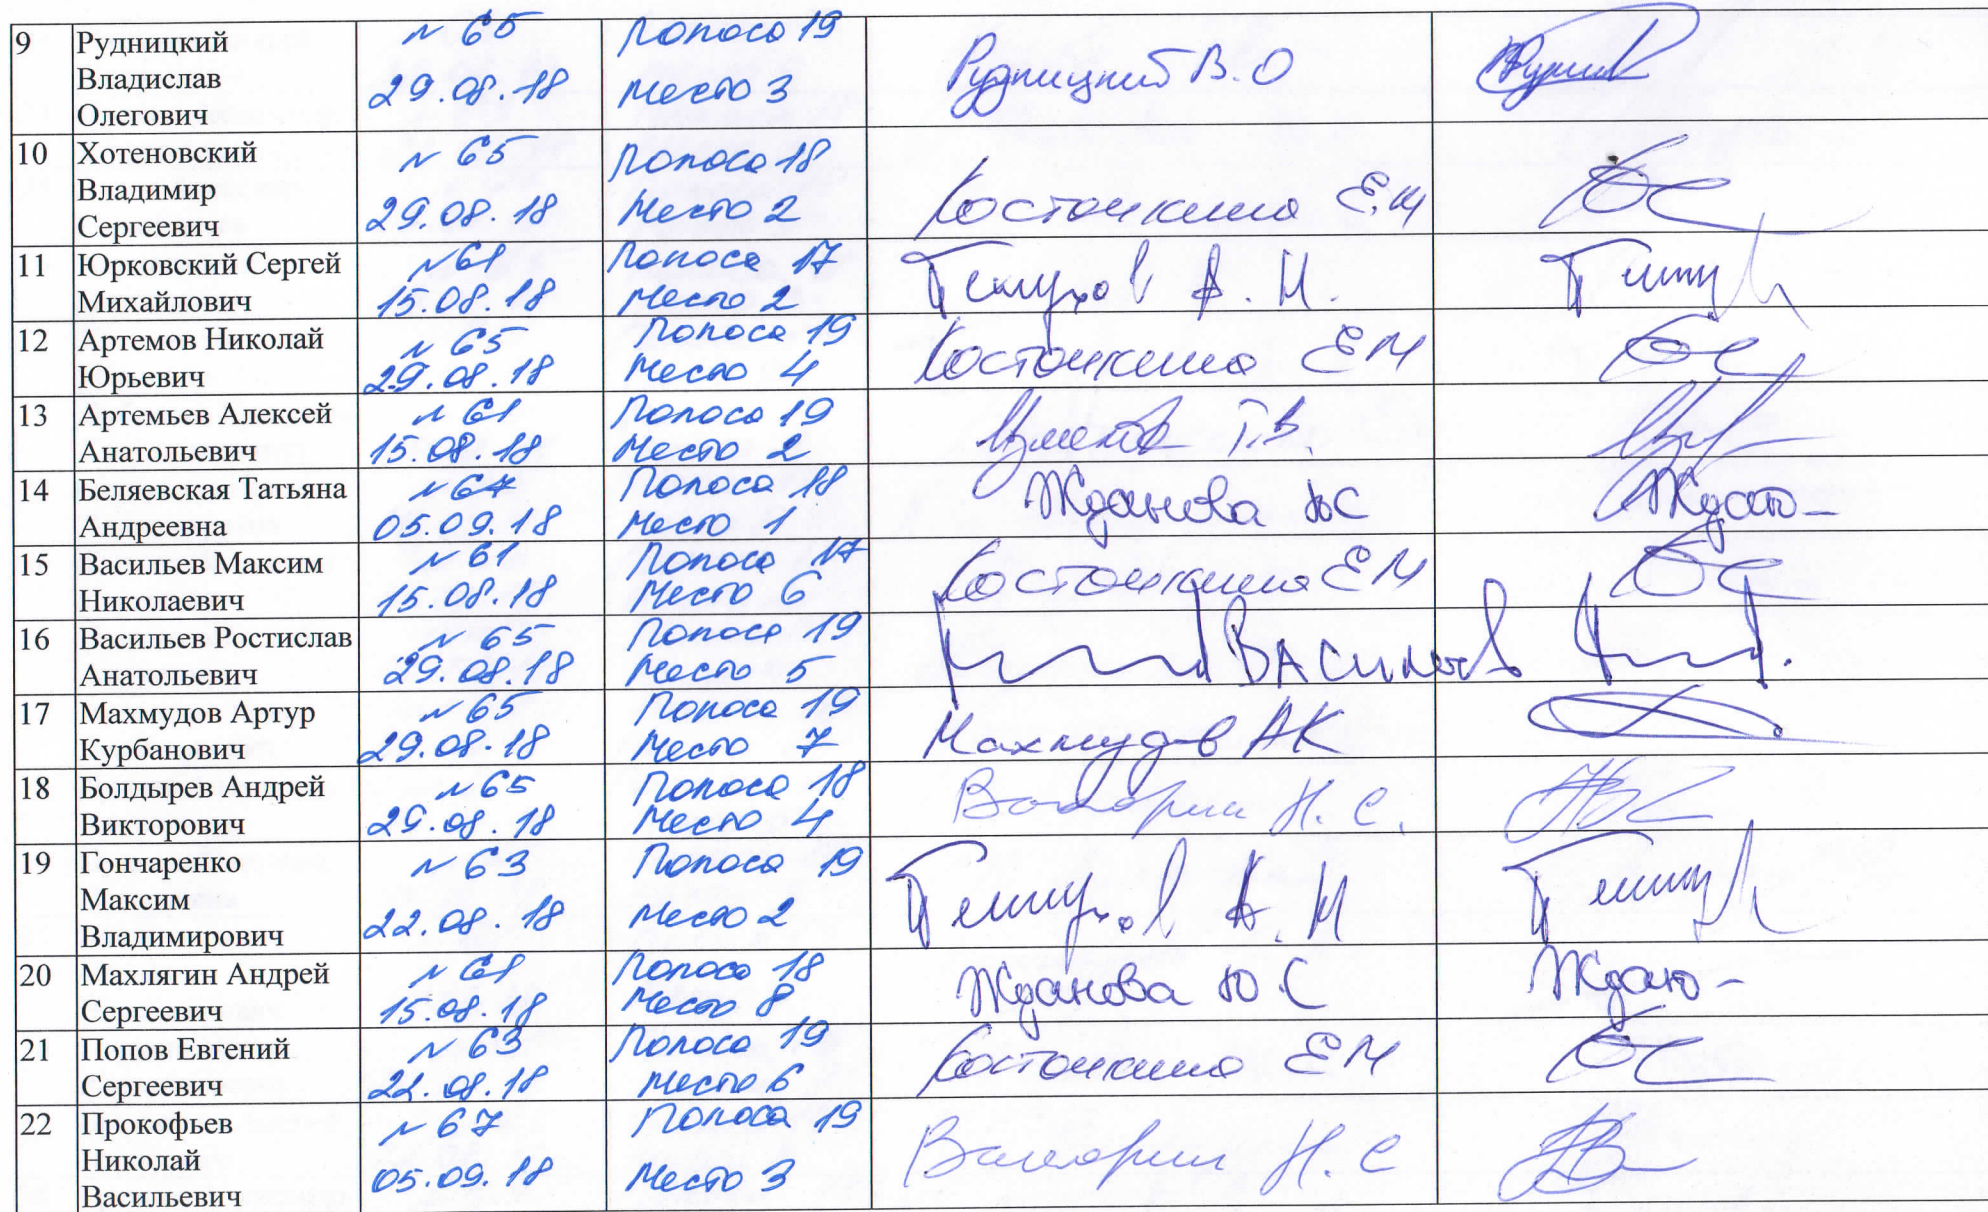 9 Рудницкий Владислав Олегович № 65 29.08.18 Полоса 19 Место 3 Рудницкий В.О
10 Хотеновский Владимир Сергеевич № 65 29.08.18 Полоса 18 Место 2
11 Юрковский Сергей Михайлович № 61 15.08.18 Полоса 17 Место 2 А.Н.
12 Артемов Николай Юрьевич № 65 29.08.18 Полоса 19 Место 4 ЕМ
13 Артемьев Алексей Анатольевич № 61 15.08.18 Полоса 19 Место 2 Т.В.
14 Беляевская Татьяна Андреевна № 67 05.09.18 Полоса 18 Место 1 Жданова ЮС
15 Васильев Максим Николаевич № 61 15.08.18 Полоса 17 Место 6 ЕМ
16 Васильев Ростислав Анатольевич № 65 29.08.18 Полоса 19 Место 5 Васильев
17 Махмудов Артур Курбанович № 65 29.08.18 Полоса 19 Место 7 Махмудов АК
18 Болдырев Андрей Викторович № 65 29.08.18 Полоса 18 Место 4 Н.С.
19 Гончаренко Максим Владимирович № 63 22.08.18 Полоса 19 Место 2 А.Н
20 Махлягин Андрей Сергеевич № 61 15.08.18 Полоса 18 Место 8 Жданова Ю.С
21 Попов Евгений Сергеевич № 63 22.08.18 Полоса 19 Место 6 ЕМ
22 Прокофьев Николай Васильевич № 67 05.09.18 Полоса 19 Место 3 Н.С